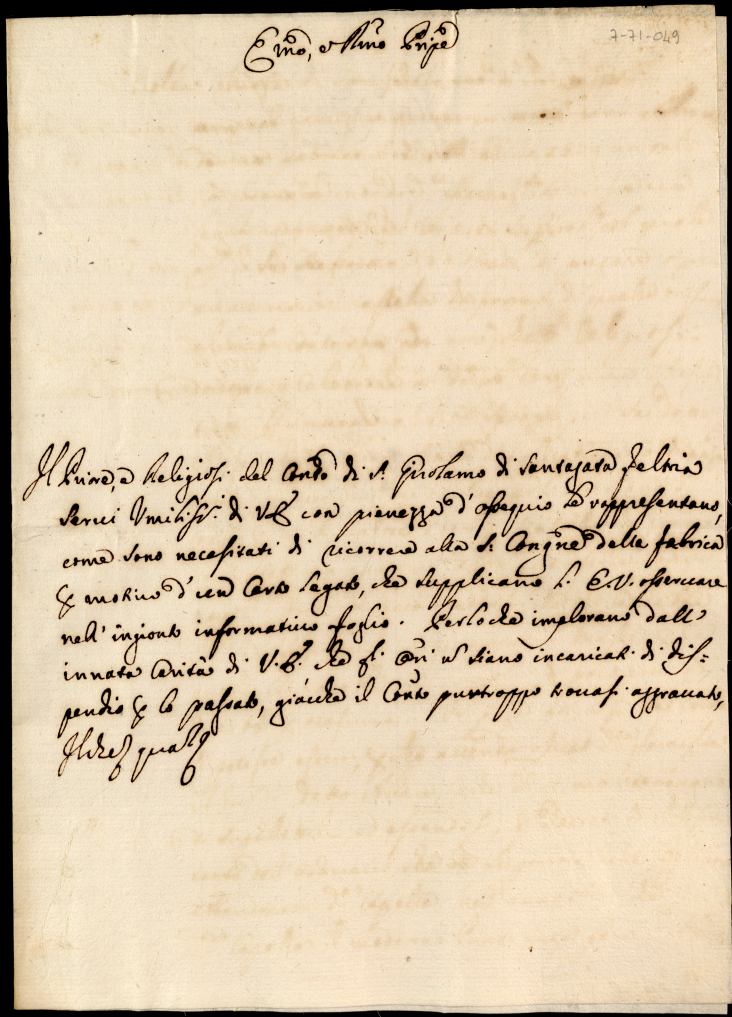 Emo, e Rmo Pnpe
7-71-049
Il Priore, e Religiosi del Conto di S. Girolamo di Santagata Feltria
servi Umilissi. di V.E. con pienezza d'ossequio Le rappresentano,
come sono necessitati di ricorrere alla S. Congne della fabrica
p motivo d'un Certo Legato, che supplicano l'E.V. osservare
nell'ingionto informativo foglio. Perloche implorano dall'
innata Carità di V.E. che gl' Ori n siano incaricati di dis=
pendio p lo passato, giacche il Conto purtroppo trovasi aggravato,
Ilche qual